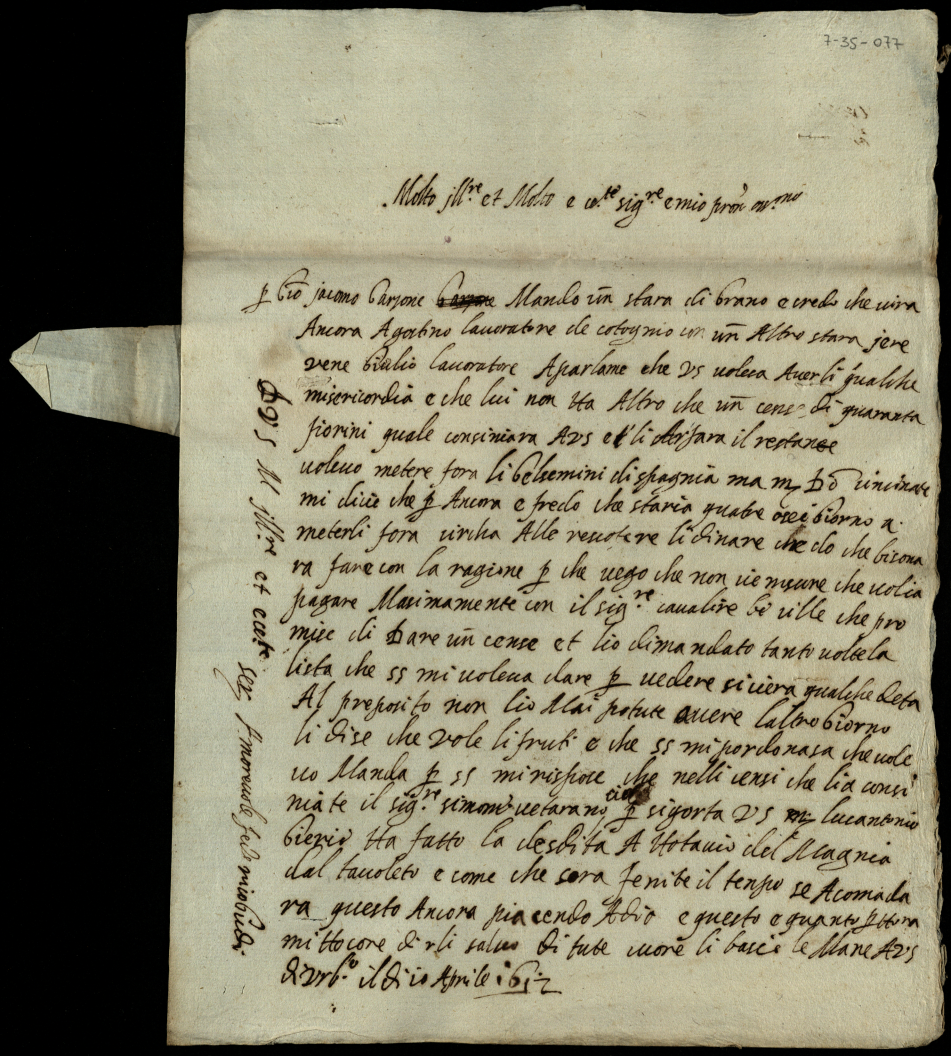 7-35-077
Molto jll.re et Molto e ce.te sig.re e mio pron
p Gio jacomo Garzone Mando un stara di Grano e credo che vira
Ancora Agostino lauoratore de cotognio un Altro stara jere
vene Giulio lauoratore Aparlame che vs uoleua Auerli qualche
misericordia e che lui non Ha Altro che un cense di quaranta
fiorini quale consiniara Avs e li il restante
uoleuo metere fora li Gelsemini di spagnia ma
mi dicie che p Ancora e fredo che staria quatre o sei Giorno a
meterli fora circha Alle rescotere li dinare che do che bisona
ra fare con la ragione p che uego che non che uolia
pagare Masimamente con il sig.re caualire che pro
mise di Dare un cense et lio dimandato tante uolte la
lista che ss mi uoleua dare p uedere si uiera qualche deta
Al preposito non lio Mai potute auere laltro Giorno
li dise che vole li fruti e che ss mi pordonasa che uole
uo Manda p ss mi rispose che nelli censi che lia consi
niate il sig.re simone uetarano p sigorta vs lucantonio
Ha fatto la desdita A Hotauio del Magnia
dal tauoleto e come che sera fenite il tempo se Acomada
ra questo Ancora piacendo Adio e questo e quanto p Hora
mi Hocore dirli saluo di tute cuore li bascio le Mane Avs
di vrb.o il di 10 Aprile 1612
D vs M jll.re et ecc.te
ser Amoreuole